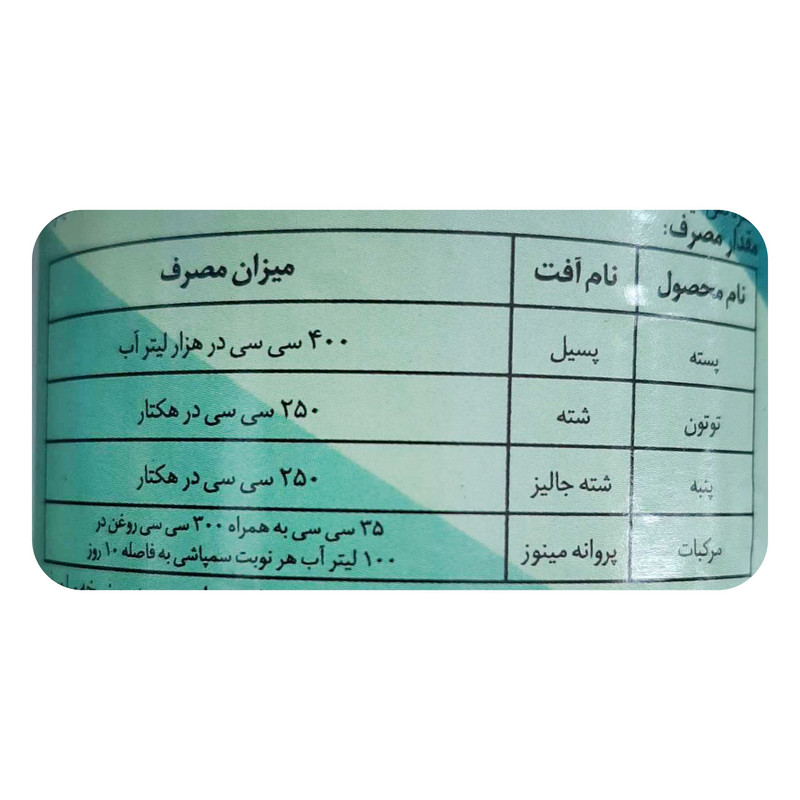 مقدار مصرف:
نام محصول نام آفت میزان مصرف
پسته پسیل ۴۰۰ سی سی در هزار لیتر آب
توتون شته ۲۵۰ سی سی در هکتار
پنبه شته جالیز ۲۵۰ سی سی در هکتار
مرکبات پروانه مینوز ۳۵ سی سی به همراه ۳۰۰ سی سی روغن در
۱۰۰ لیتر آب هر نوبت سمپاشی به فاصله ۱۰ روز